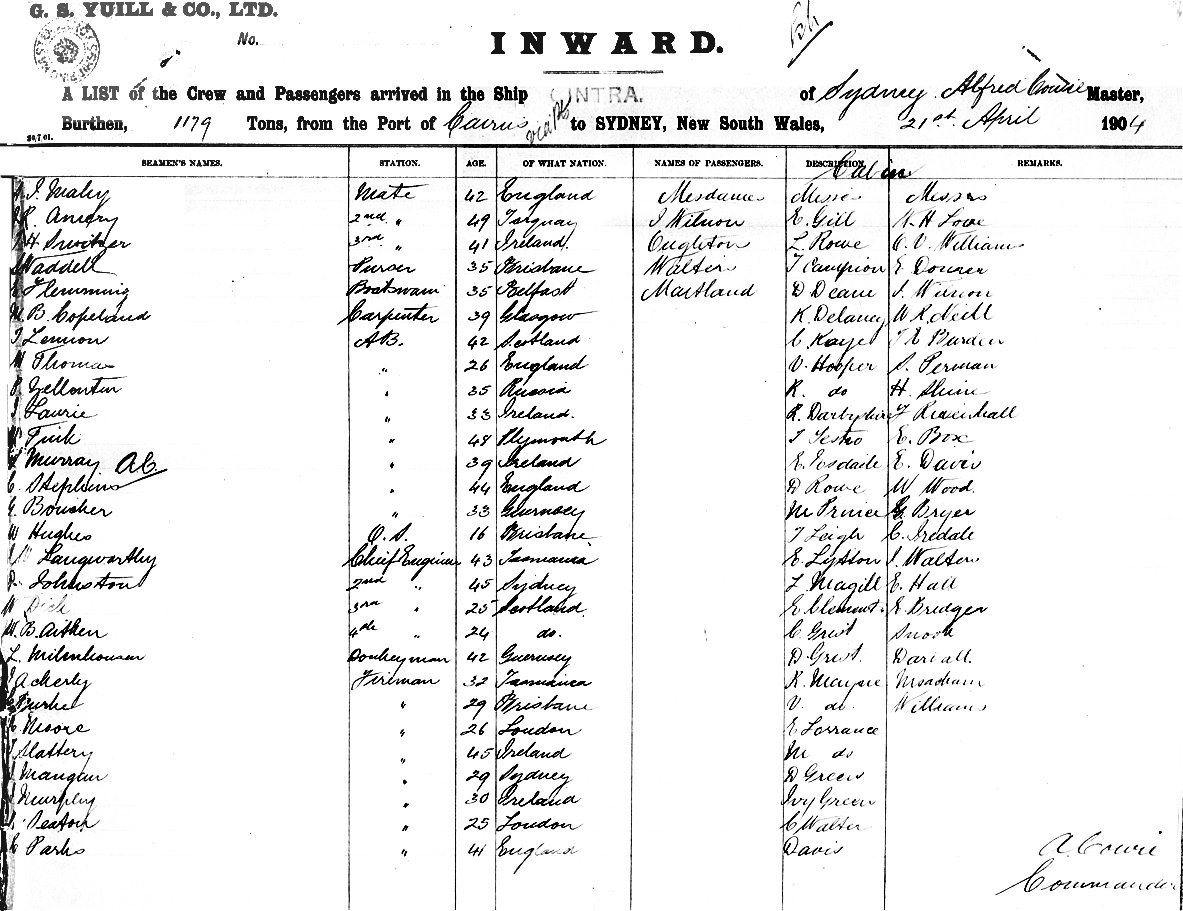 G. S. YUILL & CO., LTD.
No.
INWARD.
A LIST of the Crew and Passengers arrived in the Ship CINTRA. of Sydney Alfred Cowie Master,
Burthen, 1179 Tons, from the Port of Cairns via to SYDNEY, New South Wales, 21st April 1904
SEAMEN'S NAMES. STATION. AGE. OF WHAT NATION. NAMES OF PASSENGERS. DESCRIPTION. REMARKS.
Cabin
Maley Mate 42 England Mesdames Misses Messrs
Amery 2nd " 49 Torquay J Wilson E. Gill N. H Love
H. Switzer 3rd " 41 Ireland. L. Rowe C. V. Williams
Waddell Purser 35 Brisbane Walter T Campion E Downer
Flemming Boatswain 35 Belfast Maitland D Deane J. Wilson
B. Copeland Carpenter 39 Glasgow K. Delaney W. R. Neill
T Lennon AB. 42 Scotland C Kaye Burden
Thomas " 26 England V. Hooper S. Perman
" 35 Russia R. do H. Shine
Laurie " 33 Ireland. R. Darbyshire
Fink " 48 Plymouth E. Box
Murray AB " 39 Ireland E Esdaile E. Davis
C. Stephens " 44 England D Rowe W Wood.
G. Boucher " 33 Guernsey M Prince G Bryer
W Hughes O.S. 16 Brisbane T Leigh C. Iredale
W Langworthy Chief Engineer 43 Tasmania E Lytton J. Walters
Johnston 2nd " 45 Sydney L Magill E. Hall
W Dick 3rd " 25 Scotland. E Clement Bridger
W. B. Aitken 4th " 24 do. C. Grist Snook
L. Donkeyman 42 Guernsey D Grist. Darvall
Ackerley Fireman 32 Tasmania K. Mayne Meacham
Burke " 29 Brisbane V. do. Williams
Moore " 26 London E Lorrance
Slattery " 45 Ireland M do
Mangan " 29 Sydney D Green
Murphy " 30 Ireland Ivy Green
Deaton " 25 London C Walter
Parks " 41 England Davis
A. Cowie
Commander